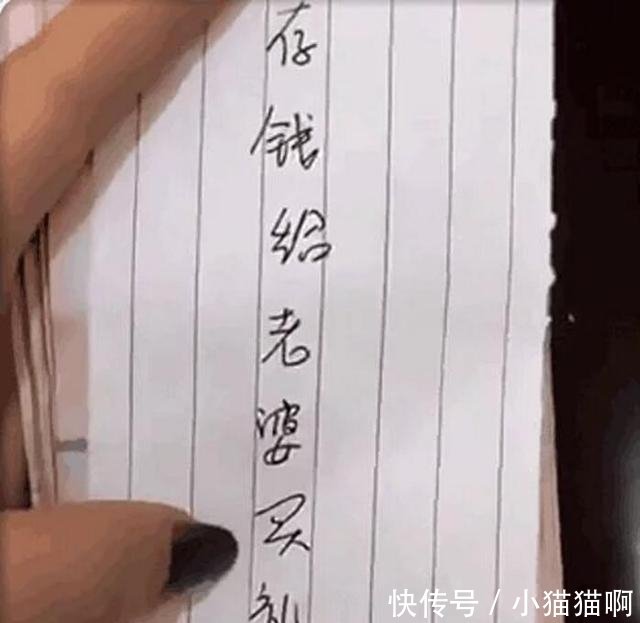 存钱给老婆买礼
快传号/小猫猫啊